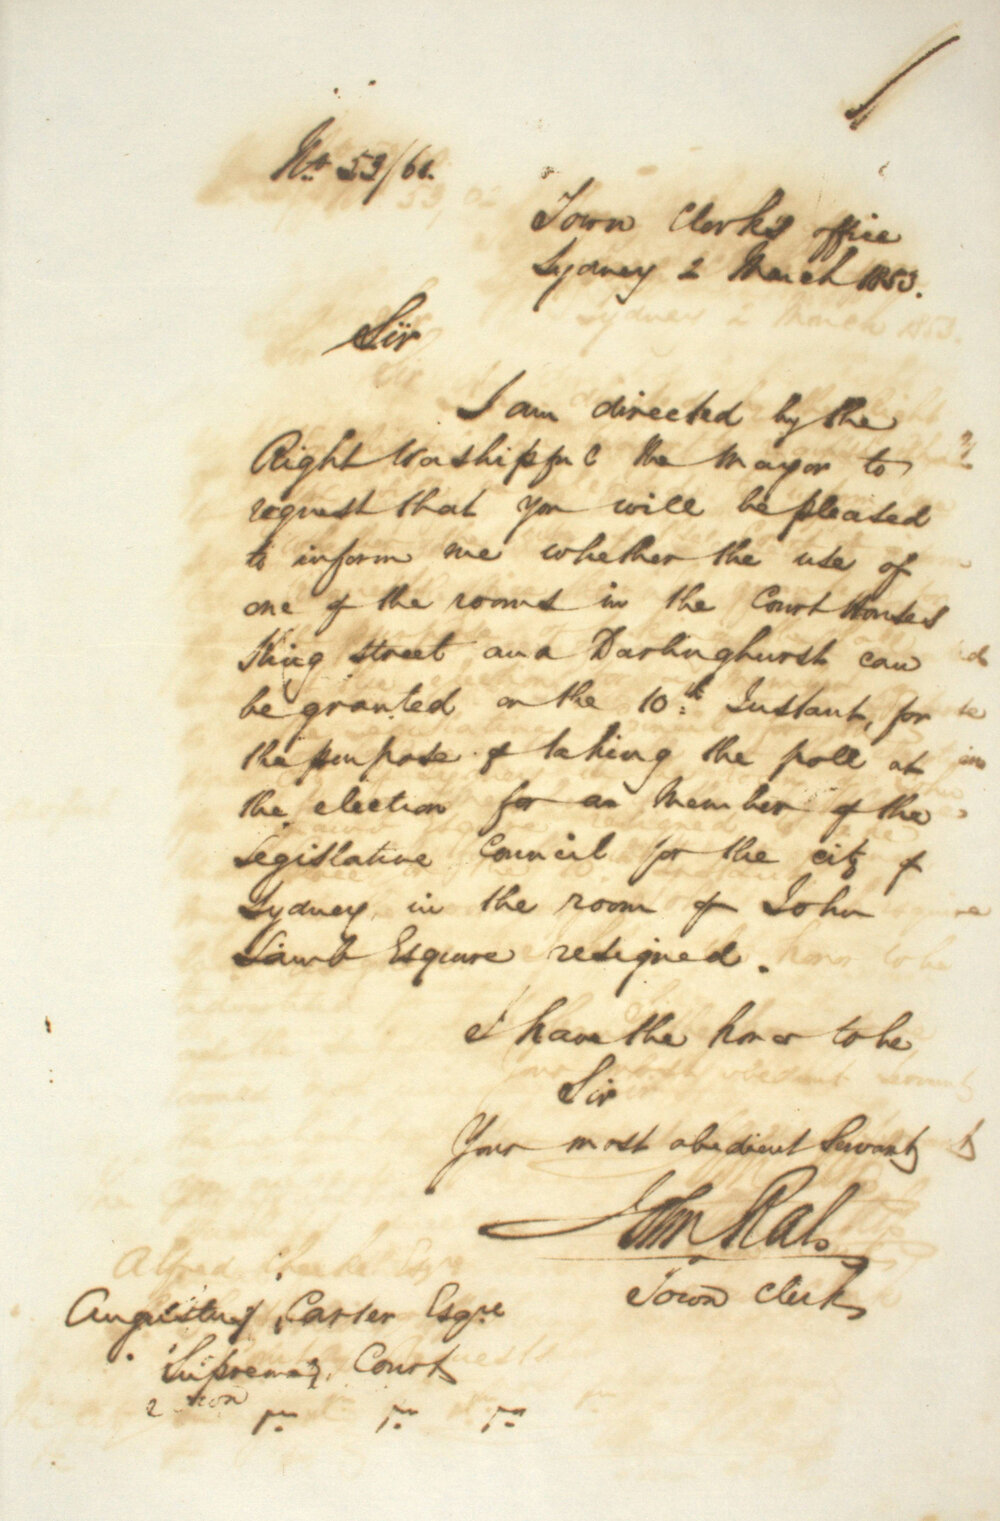 No. 53/61.
Town Clerk's office
Sydney 2 March 1853.
Sir
I am directed by the
Right Worshipful the Mayor to
request that you will be pleased
to inform me whether the use of
one of the rooms in the Court Houses
King street and Darlinghurst can
be granted on the 10th. Instant, for
the purpose of taking the poll at
the election for a Member of the
Legislative Council for the city of
Sydney, in the room of John
Lamb Esquire resigned.
I have the honor to be
Sir
Your most obedient Servant
John Rae
Town Clerk
Augustus Carter Esqre
Supreme Court